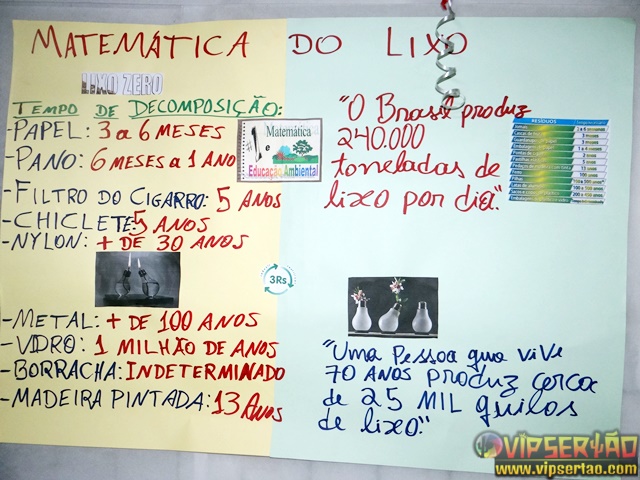 MATEMÁTICA DO LIXO
LIXO ZERO
TEMPO DE DECOMPOSIÇÃO:
-PAPEL: 3 a 6 MESES
-PANO: 6 MESES a 1 ANO
-FILTRO DO CIGARRO: 5 ANOS
-CHICLETE: 5 ANOS
-NYLON: + DE 30 ANOS
Matemática
e
Educação Ambiental
3Rs
-METAL: + DE 100 ANOS
-VIDRO: 1 MILHÃO DE ANOS
-BORRACHA: INDETERMINADO
-MADEIRA PINTADA: 13 ANOS
"O Brasil produz
240.000
toneladas de
lixo por dia".
RESÍDUOS
"Uma Pessoa que vive
70 ANOS produz cerca
de 25 MIL quilos
de lixo".
VIPSERTÃO
www.vipsertao.com